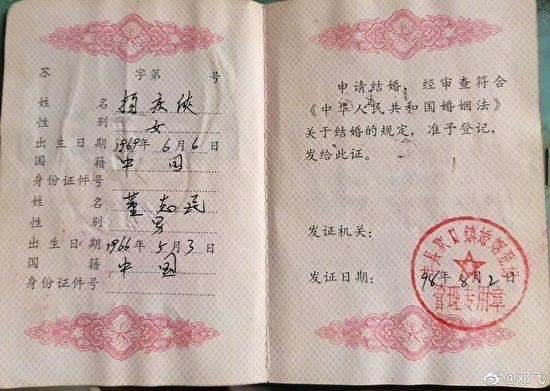 苏 字第 号
姓名 杨庆侠
性别 女
出生日期 1969年6月6日
国籍 中国
身份证件号
姓名 董志民
性别 男
出生日期 1966年5月3日
国籍 中国
身份证件号
申请结婚,经审查符合
《中华人民共和国婚姻法》
关于结婚的规定,准予登记,
发给此证。
发证机关:
丰县欢口镇婚姻登记
发证日期: 98年8月2日
管理专用章
@邓飞